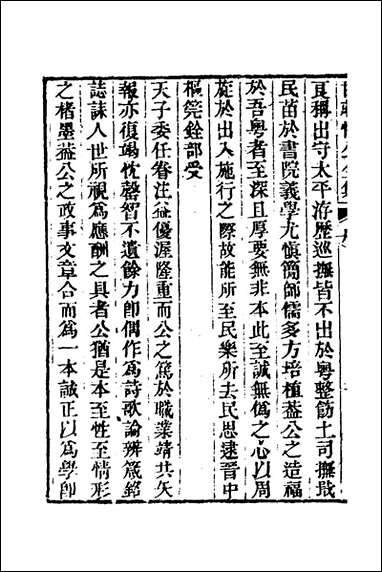 互稱出守太平洊歷巡撫皆不出於粵整飭土司撫戢
民苗於書院義學尤慎簡師儒多方培植葢公之造福
於吾粵者至深且厚要無非本此至誠無僞之心以周
旋於出入施行之際故能所至民樂所去民思逮晉中
樞筦銓部受
天子委任眷注益優渥隆重而公之篤於職業靖共矢
報亦復竭忱罄智不遺餘力卽偶作爲詩歌論辨箴銘
誌誄人世所視爲應酬之具者公猶是本至性至情形
之楮墨葢公之政事文章合而爲一本誠正以爲學卽